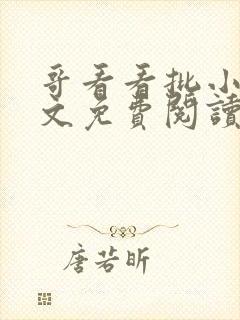 哥看看批小
文免費閱讀
唐若昕